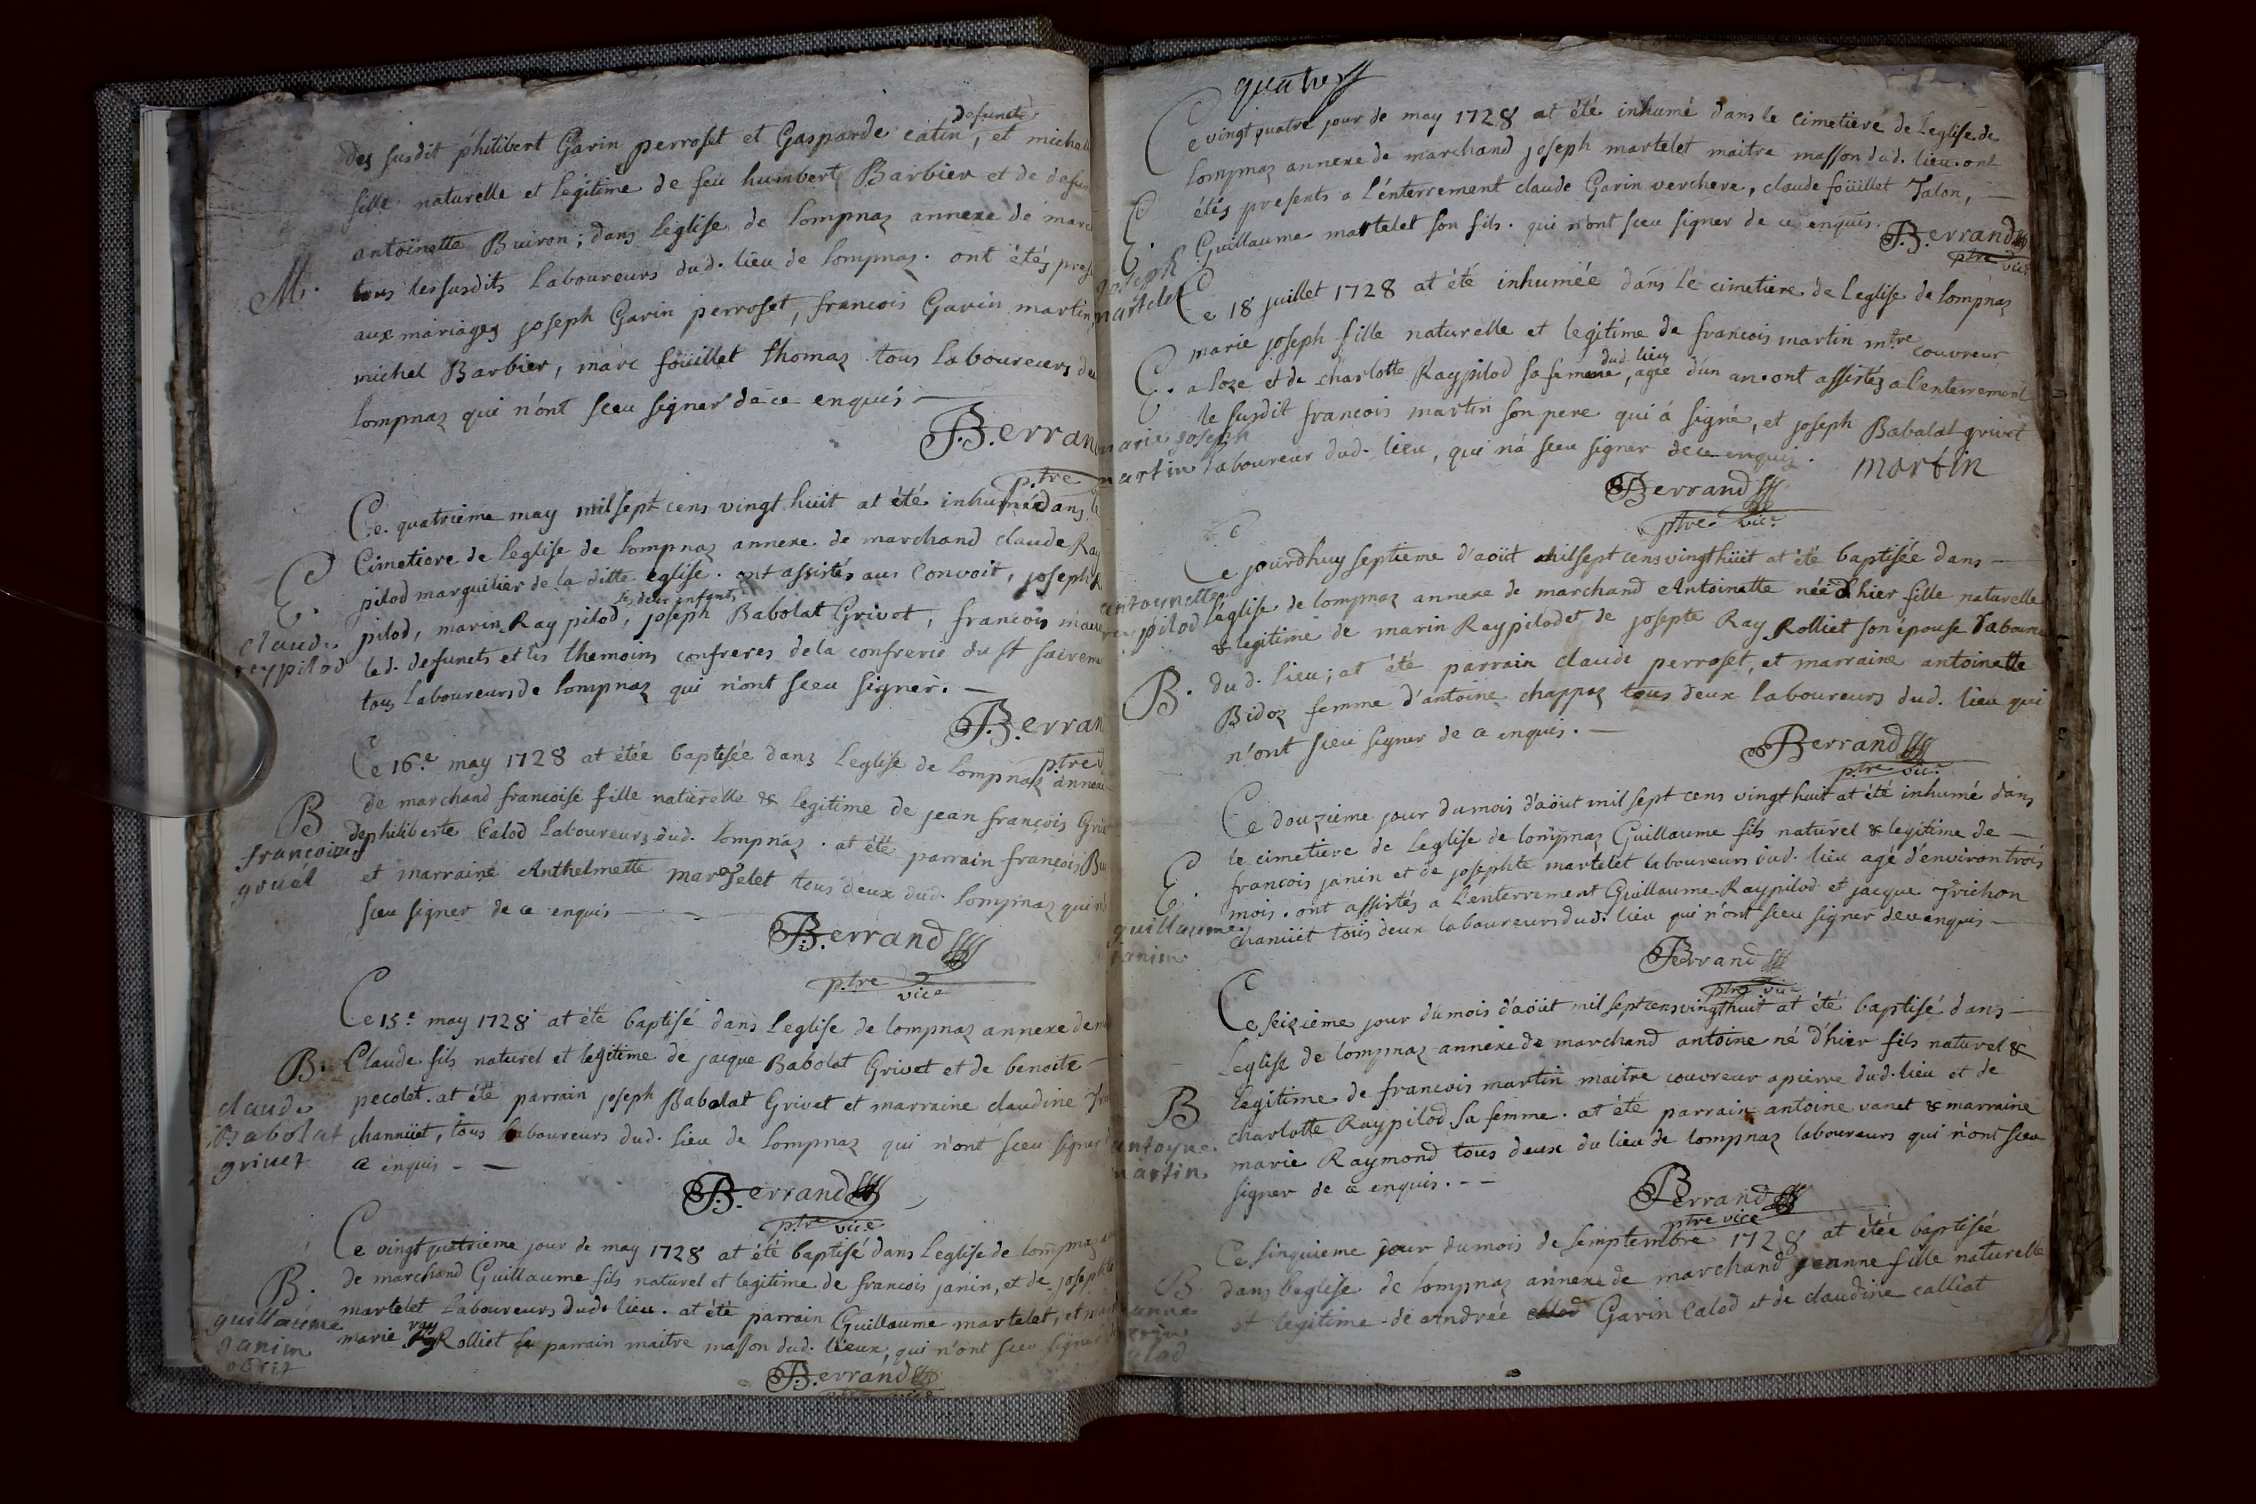 defuncte
des susdit philibert Garin perroset et Gasparde catin, et michel
fille naturelle et legitime de feu humbert Barbier et de defun
antoinette Buiron; dans l'eglise de lompnaz annexe de marc
M.
tous les susdits laboureurs dud. lieu de lompnaz. ont étés pres
aux mariages joseph Garin perroset, francois Garin martin,
michel Barbier, marc foüillet thomaz tous laboureurs du
lompnaz qui n'ont sceu signer de ce enquis
Berran
ptre
Ce quatrieme may mil sept cens vingt huit at été inhumé dans le
Cimetiere de l'eglise de lompnaz annexe de marchand claude Ray
pilod marguilier de la ditte eglise. ont assistés au convoit, joseph R
ses deux enfants
pilod, marin Ray pilod, joseph Babolat Grivet, francois
E.
claude
reypilod
led. defunets et les themoins confreres de la confrerie du st sacrem
tous laboureurs de lompnaz qui n'ont sceu signer.
Berran
ptre
Ce 16.e may 1728 at étée baptisée dans l'eglise de lompnaz annexe
B
francoise
de marchand francoise fille naturelle & legitime de jean françois Gri
de philiberte Calod laboureurs dud. lompnaz. at été parrain françois Bu
et marraine Anthelmette martelet tous deux dud. lompnaz qui n'
sceu signer de ce enquis
Berrand
ptre vice
Ce 15.e may 1728 at été baptisé dans l'eglise de lompnaz annexe de m
B.
claude
Babolat
grivet
Claude fils naturel et legitime de jacque Babolat Grivet et de benoite
pecolet. at été parrain joseph Babolat Grivet et marraine claudine
channüet, tous laboureurs dud. lieu de lompnaz qui n'ont sceu signer
ce enquis
Berrand
ptre vice
Ce vingt quatrieme jour de may 1728 at été baptisé dans l'eglise de lompnaz
B.
guillaume
janin
de marchand Guillaume fils naturel et legitime de francois janin, et de josephte
martelet laboureurs dud. lieu. at été parrain Guillaume martelet, et
marie ray Rolliet le parrain maitre masson dud. lieux, qui n'ont sceu signer
Berrand
quatre
Ce vingt quatre jour de may 1728 at été inhumé dans le cimetiere de l'eglise de
lompnaz annexe de marchand joseph martelet maitre masson dud. lieu. ont
étés presents a l'enterrement claude Garin verchere, claude foüillet Jalon,
E.
joseph
martelet
Guillaume martelet son fils. qui n'ont sceu signer de ce enquis.
Berrand
ptre vice
Ce 18 juillet 1728 at été inhumiée dans le cimetiere de l'eglise de lompnaz
marie joseph fille naturelle et legitime de francois martin mtre couvreur
dud. lieu
a loze et de charlotte Raypilod sa femme, agée d'un an. ont assistés a l'enterrement
E.
marie joseph
martin
le susdit francois martin son pere qui á signé, et joseph Babalat grivet
laboureur dud. lieu, qui n'a sceu signer de ce enquis.
martin
Berrand
ptre vice
Ce jourdhuy septieme d'aoüt mil sept cens vingt huit at été baptisée dans
antoinette
rey pilod
B.
l'eglise de lompnaz annexe de marchand Antoinette née d'hier fille naturelle
& legitime de marin Raypilod et de josepte Ray Rolliet son épouse laboureu
dud. lieu; at été parrain claude perroset, et marraine antoinette
Bidoz femme d'antoine chappaz tous deux laboureurs dud. lieu qui
n'ont sceu signer de ce enquis.
Berrand
ptre vice
Ce douzieme jour du mois d'aoüt mil sept cens vingt huit at été inhumé dans
le cimetiere de l'eglise de lompnaz Guillaume fils naturel & legitime de
E.
guillaume
janin
francois janin et de josephte martelet laboureurs dud. lieu agé d'environ trois
mois. ont assistés a l'enterrement Guillaume Raypilod et jacque Trichon
chanüet tous deux laboureurs dud. lieu qui n'ont sceu signer de ce enquis
Berrand
ptre vice
Ce seizieme jour du mois d'aoüt mil sept cens vingt huit at été baptisé dans
l'eglise de lompnaz annexe de marchand antoine né d'hier fils naturel &
B
antoyne
martin
legitime de francois martin maitre couvreur a pierre dud. lieu et de
charlotte Raypilod sa femme. at été parrain antoine vanet & marraine
marie Raymond tous deux du lieu de lompnaz laboureurs qui n'ont sceu
signer de ce enquis.
Berrand
ptre vice
Ce sinquieme jour du mois de semptembre 1728 at étée baptisée
B
dans l'eglise de lompnaz annexe de marchand jeanne fille naturelle
et legitime de Andrée Garin Calod et de claudine calliat